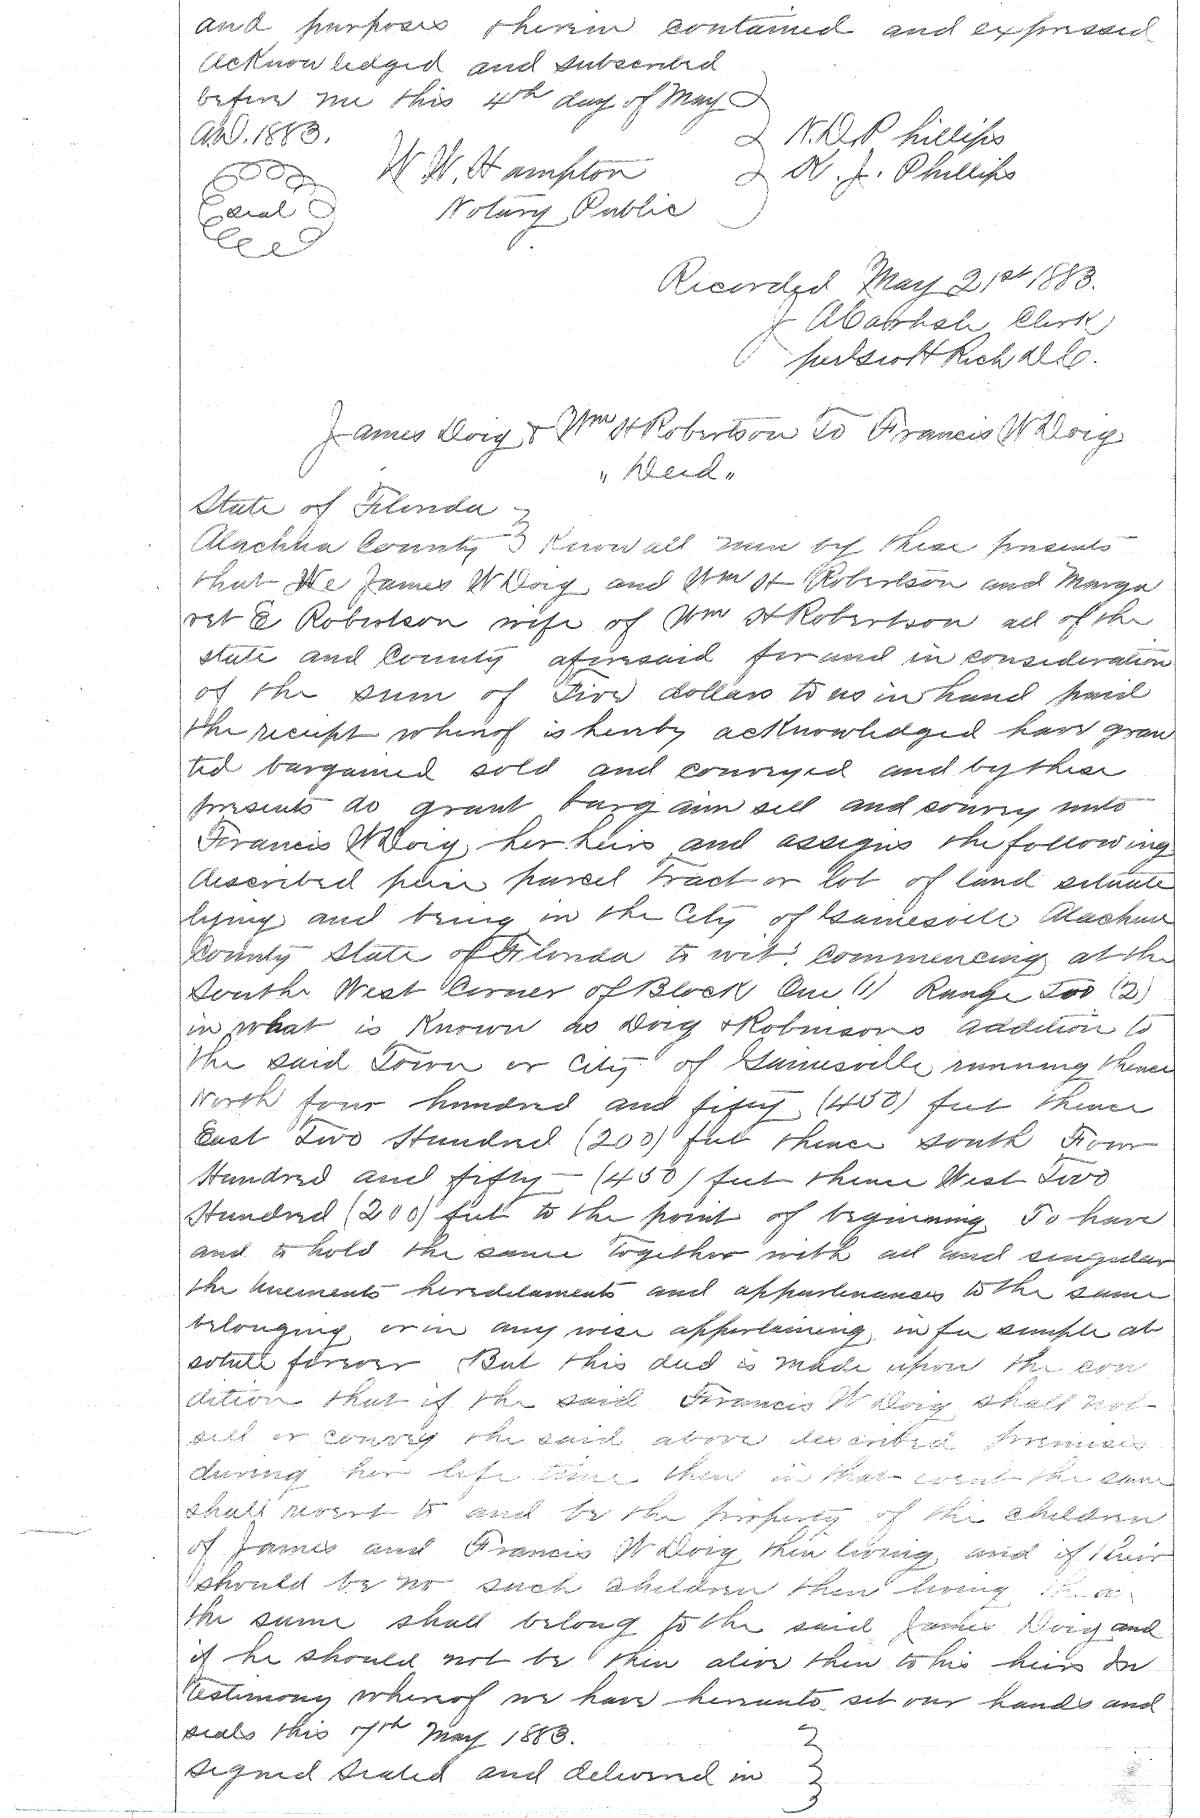 and purposes therein contained and expressed
Acknowledged and subscribed
before me this 4th day of May
A.D. 1883.
N. D. Phillips
W. W. Hampton
K. J. Phillips
Seal
Notary Public
Recorded May 21st 1883.
J A Carlisle Clerk
per Geo H Rich D.C.
James Doig & Wm H Robertson To Francis W Doig
" Deed "
State of Florida
Alachua County Know all men by these presents
that We James W Doig and Wm H Robertson and Marga
ret E Robertson wife of Wm H Robertson all of the
state and County aforesaid for and in consideration
of the sum of Five dollars to us in hand paid
the receipt whereof is hereby acknowledged have gran
ted bargained sold and conveyed and by these
presents do grant bargain sell and convey unto
Francis W Doig her heirs and assigns the following
described peice parcel Tract or lot of land situate
lying and being in the City of Gainesville Alachua
County State of Florida to wit: Commencing at the
South West Corner of Block One (1) Range Two (2)
in what is Known as Doig & Robinsons addition to
the said Town or City of Gainesville running thence
North four hundred and fifty (450) feet thence
East Two Hundred (200) feet thence south Four
Hundred and fifty (450) feet thence West Two
Hundred (200) feet to the point of beginning To have
and to hold the same together with all and singular
the tenements heredetaments and appurtenances to the same
belonging or in any wise appertaining in fee simple ab
solute forever But this deed is made upon the con
dition that if the said Francis W Doig shall not
sell or convey the said above described premises
during her life time then in that event the same
shall revert to and be the property of the children
of James and Francis W Doig then living and if their
should be no such children then living
the same shall belong to the said James Doig and
if he should not be then alive then to his heirs In
Testimony whereof we have hereunto set our hands and
seals this 7th May 1883.
signed sealed and delivered in